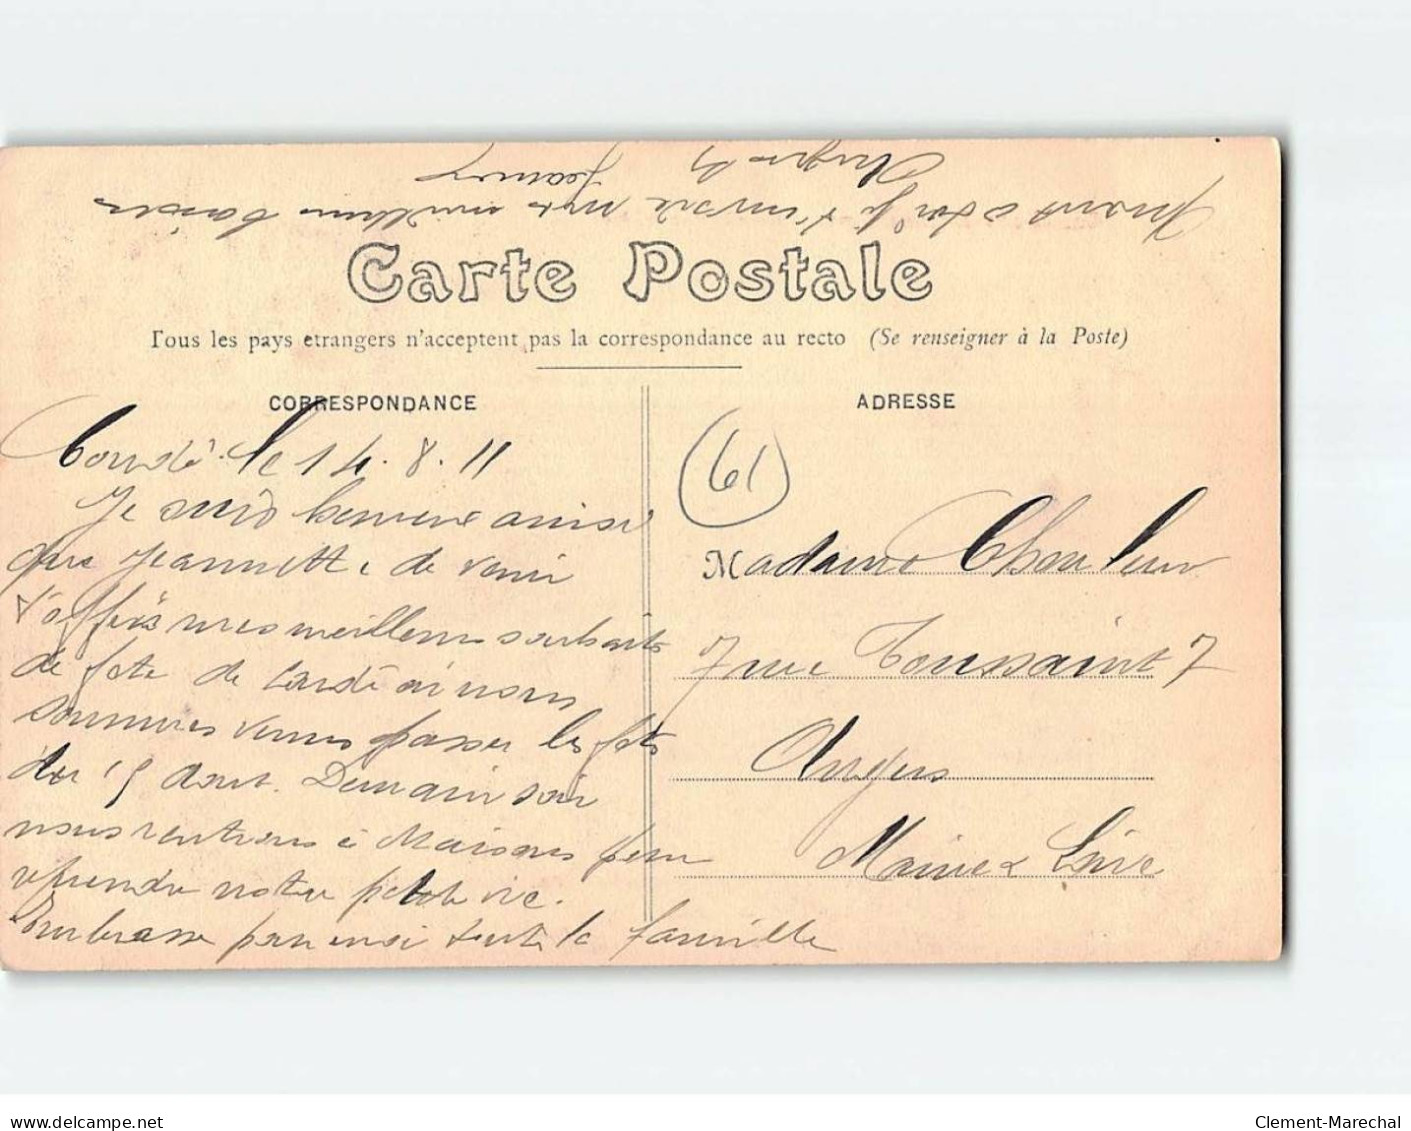 Carte Postale
Tous les pays étrangers n'acceptent pas la correspondance au recto (Se renseigner à la Poste)
CORRESPONDANCE
Condé le 14. 8. 11
Je suis heureuse ainsi
que Jeannette de venir
t'offrir mes meilleurs souhaits
de fête de Condé où nous
sommes venus passer les fêtes
du 15 aout. Demain soir
nous rentrons à Maisons pour
reprendre notre petite vie.
Embrasse pour moi toute la famille
Quant à toi je t'envoie mes meilleurs baisers
ADRESSE
61
Madame
7 rue Toussaint 7
Angers
Maine & Loire
delcampe.net
Clement-Marechal